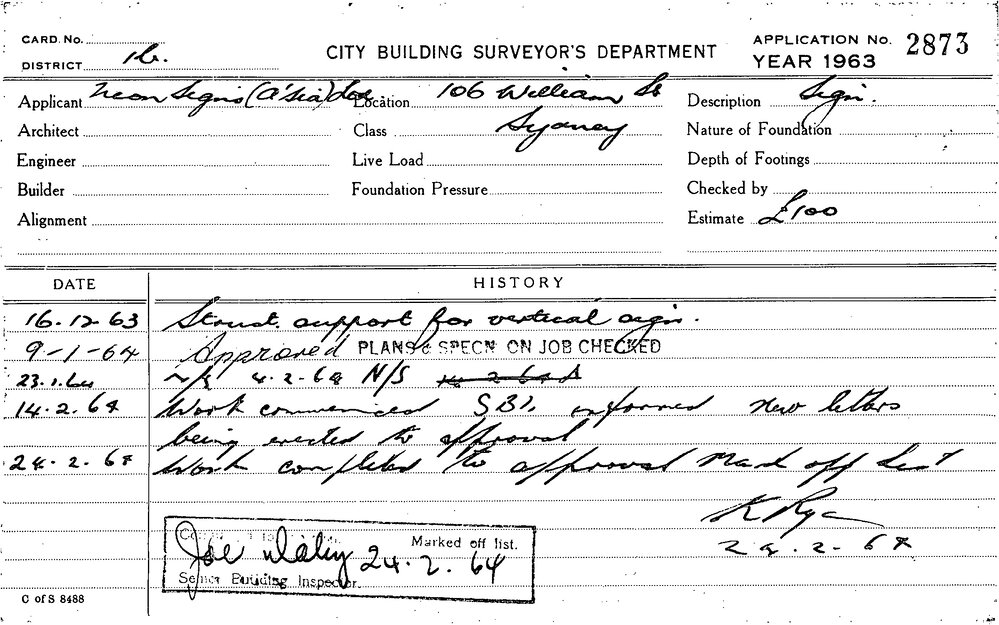 CARD. No.
DISTRICT 16.
CITY BUILDING SURVEYOR'S DEPARTMENT
APPLICATION No. 2873
YEAR 1963
Applicant Neon Signs (A'sia) Location 106 William St Description Sign.
Architect Class Sydney Nature of Foundation
Engineer Live Load Depth of Footings
Builder Foundation Pressure Checked by
Alignment Estimate £100
DATE HISTORY
16.12.63 Struct. support for vertical sign.
9-1-64 Approved PLANS & SPECN ON JOB CHECKED
23.1.64 N/S 4.2.64 N/S
14.2.64 Work commenced SBI. informed new letters
being erected to approval
24.2.64 Work completed to approval Mark off list
K Rya
24.2.64
Marked off list.
Joe Daley 24.2.64
Senior Building Inspector.
C of S 8488